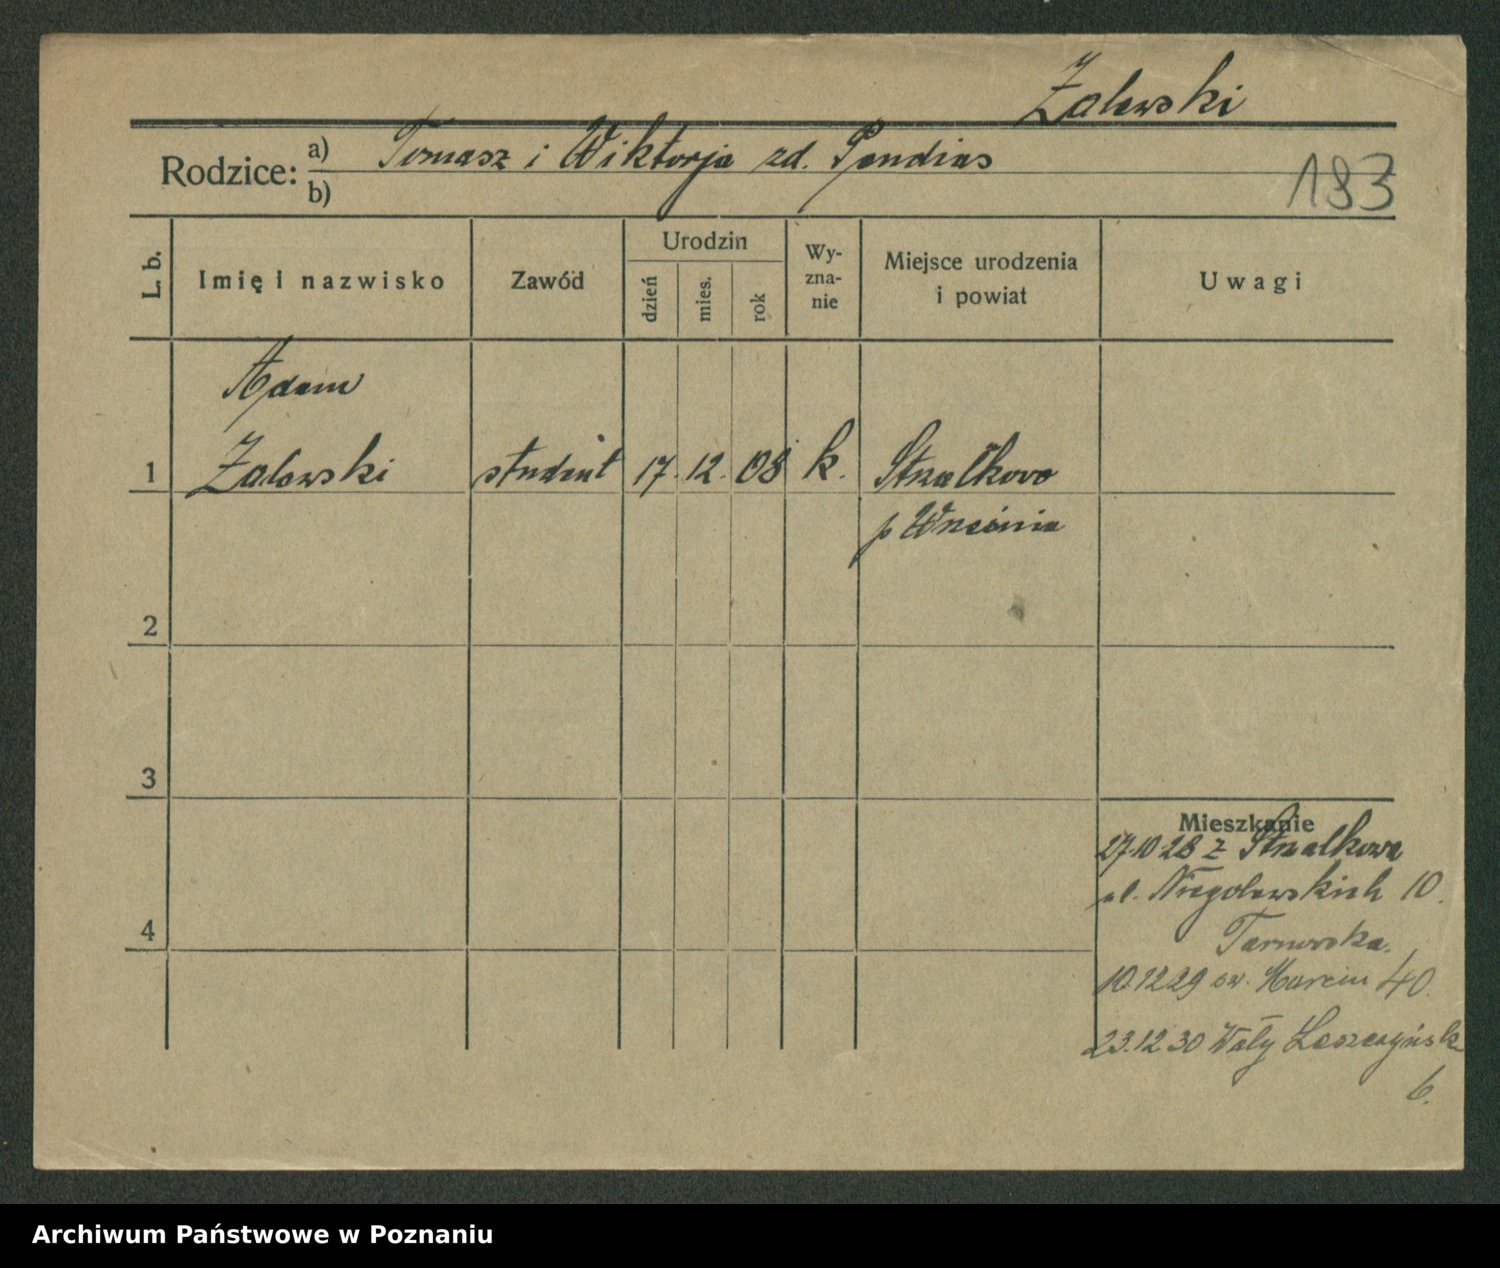 Zalewski
Rodzice: a) Tomasz i Wiktorja zd. Pendias
b)
183
L. b.
Imię i nazwisko
Zawód
Urodzin
dzień
mies.
rok
Wy-
zna-
nie
Miejsce urodzenia
i powiat
Uwagi
Adam
1 Zalewski student 17. 12. 08 k. Strzałkowo
p Września
2
3
Mieszkanie
27.10 28 z Strzalkowa
ul. Niegolewskich 10.
4
Tarnowska.
10.12 29 św. Marcin 40.
23.12 30 Wały Leszczyńsk
6.
Archiwum Państwowe w Poznaniu